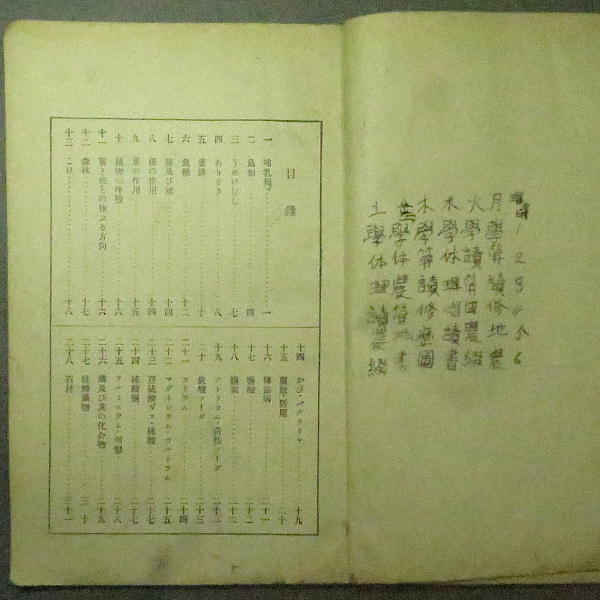 曜 1 2 3 4 5 6
月 學 算 讀 修 地 農
火 學 讀 算 国 農 綴
木 學 体 理 唱 讀 書
木 學 算 讀 修 歴 圖
金 學 体 農 算 地 書
土 學 体 理 讀 農 綴
目錄
一 哺乳類 一
二 鳥類 四
三 うめけむし 七
四 ありまき 八
五 蜜蜂 十
六 魚類 十二
七 肺及び鰓 十四
八 根の作用 十四
九 葉の作用 十五
十 植物の呼吸 十六
十一 莖と根との伸ぶる方向 十六
十二 森林 十七
十三 こけ 十八
十四 かび・バクテリヤ 十九
十五 腐敗・防腐 二十
十六 傳染病 二十一
十七 鹽酸 二十二
十八 鹽素 二十二
十九 ナトリウム・苛性ソーダ 二十二
二十 炭酸ソーダ 二十三
二十一 カリウム 二十四
二十二 マグネシウム・カルシウム 二十五
二十三 亞硫酸ガス・硫酸 二十七
二十四 硫酸銅 二十七
二十五 アルミニウム・明礬 二十八
二十六 燐及び其の化合物 二十九
二十七 硅酸鑛物 三十
二十八 石材 三十一